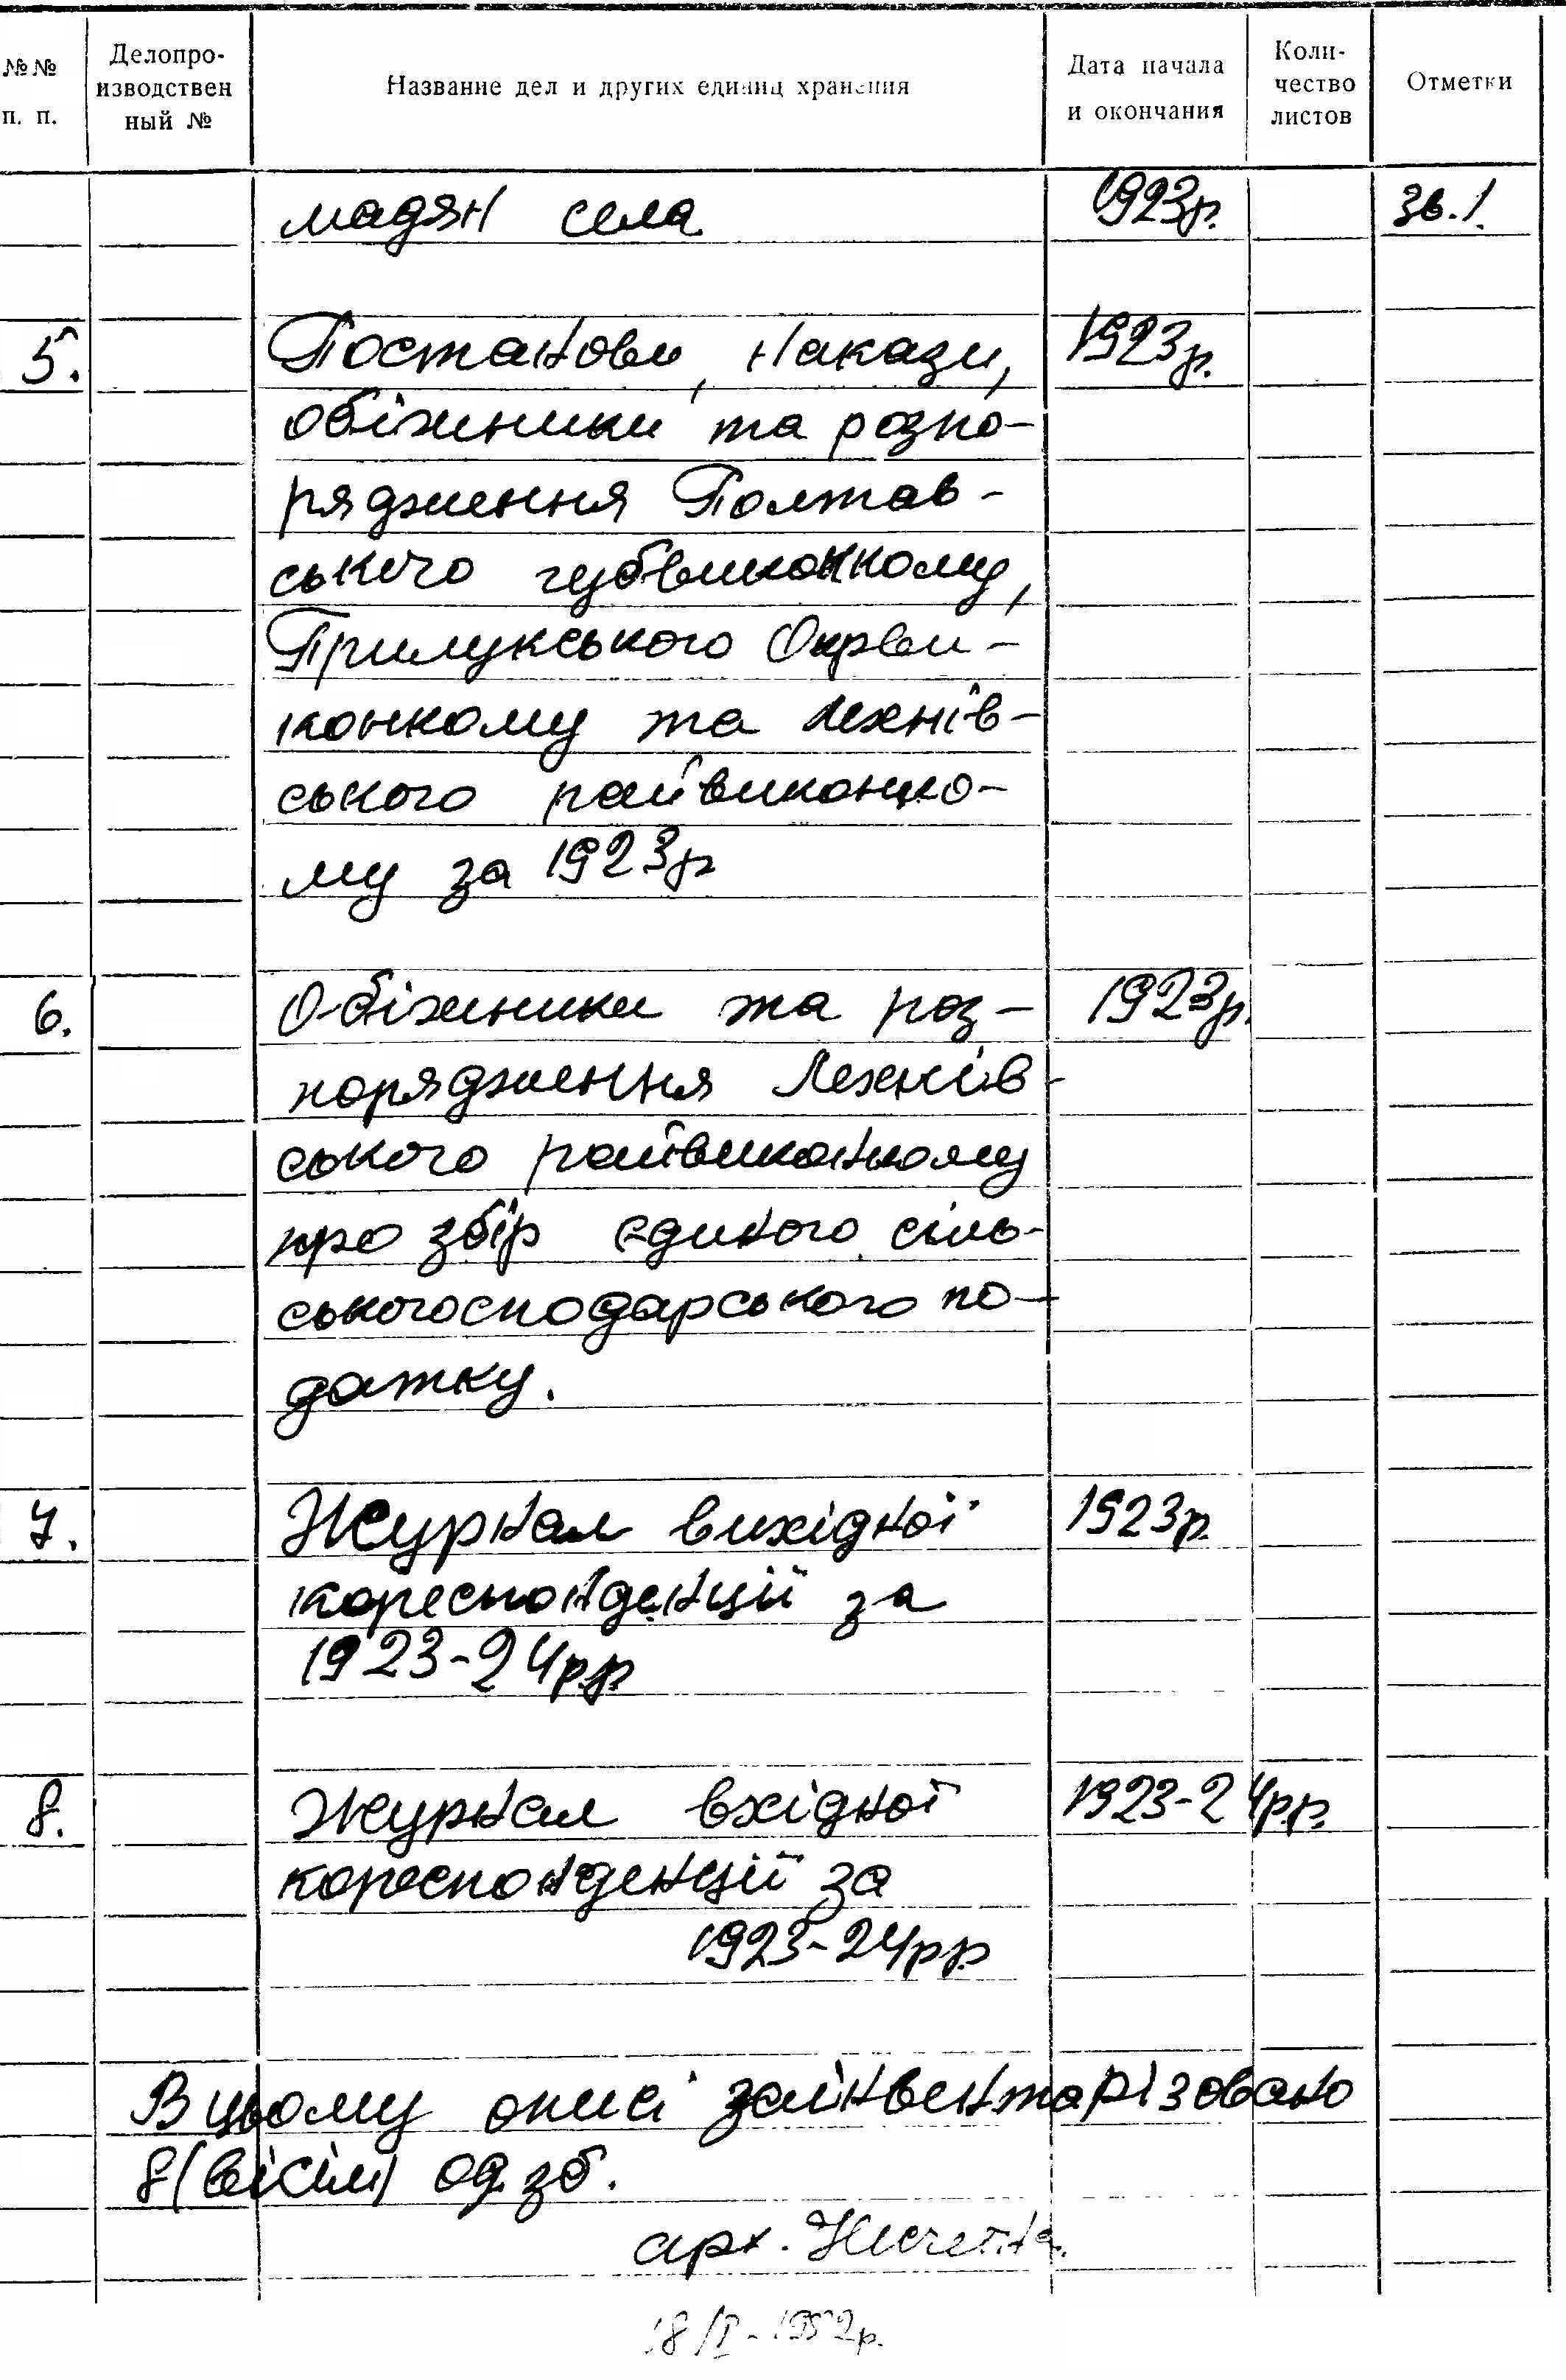 №№ п. п. Делопро-изводствен ный № Название дел и других единиц хранения Дата начала и окончания Коли-чество листов Отметки
мадян села 1923р. Зв.1.
5. Постанови, накази, 1923р.
обіжники та розпо-
рядження Полтав-
ського губвиконкому,
Прилукського Окрви-
конкому та Лехнів-
ського райвиконко-
му за 1923р
6. Обіжники та роз- 1923р.
порядження Лехнів-
ського райвиконкому
про збір єдиного сіль-
ськогосподарського по-
датку.
7. Журнал вихідної 1923р.
кореспонденції за
1923-24рр
8. Журнал вхідної 1923-24рр.
кореспонденції за
1923-24рр
В цьому описі заінвентарізовано
8(вісім) од.зб.
арх.
18/I-1952р.